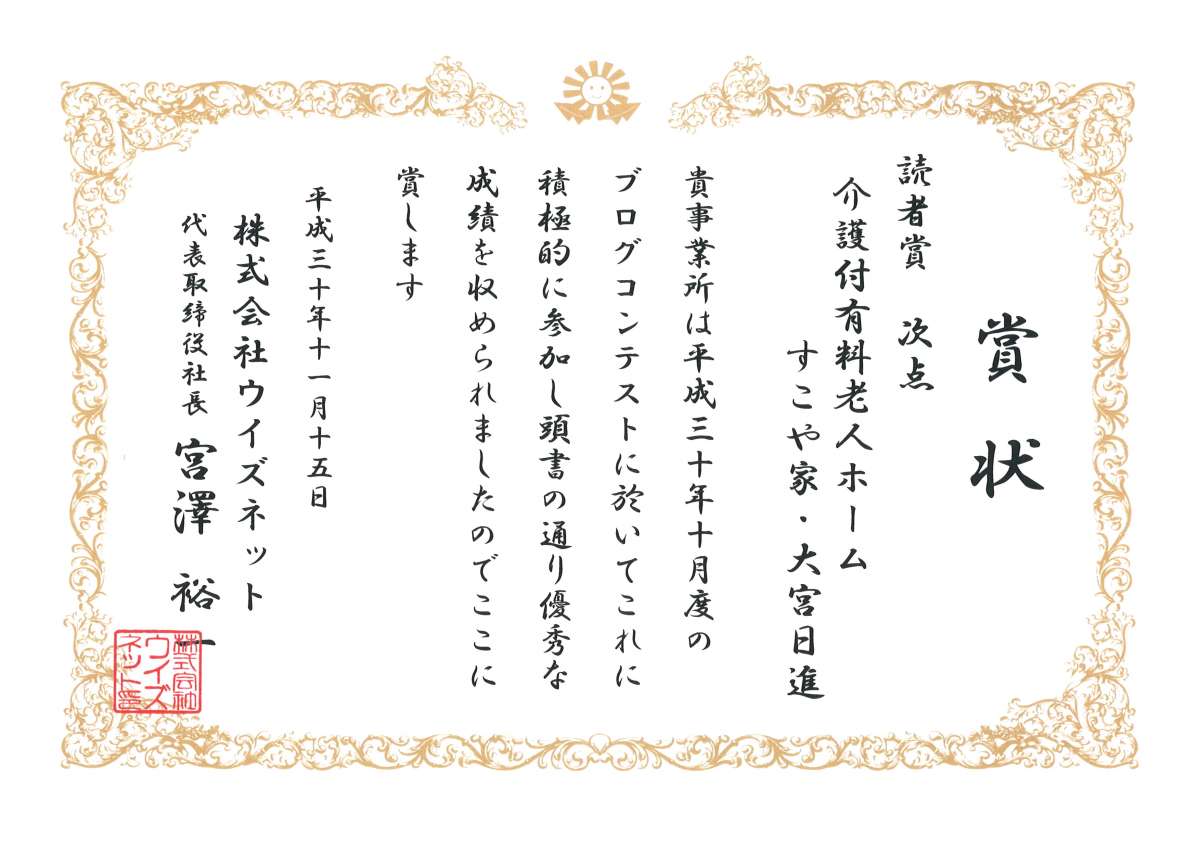 賞状
読者賞 次点
介護付有料老人ホーム
すこや家・大宮日進
貴事業所は平成三十年十月度の
ブログコンテストに於いてこれに
積極的に参加し頭書の通り優秀な
成績を収められましたのでここに
賞します
平成三十年十一月十五日
株式会社ウイズネット
代表取締役社長 宮澤 裕一
株式会社
ウイズ
ネット印